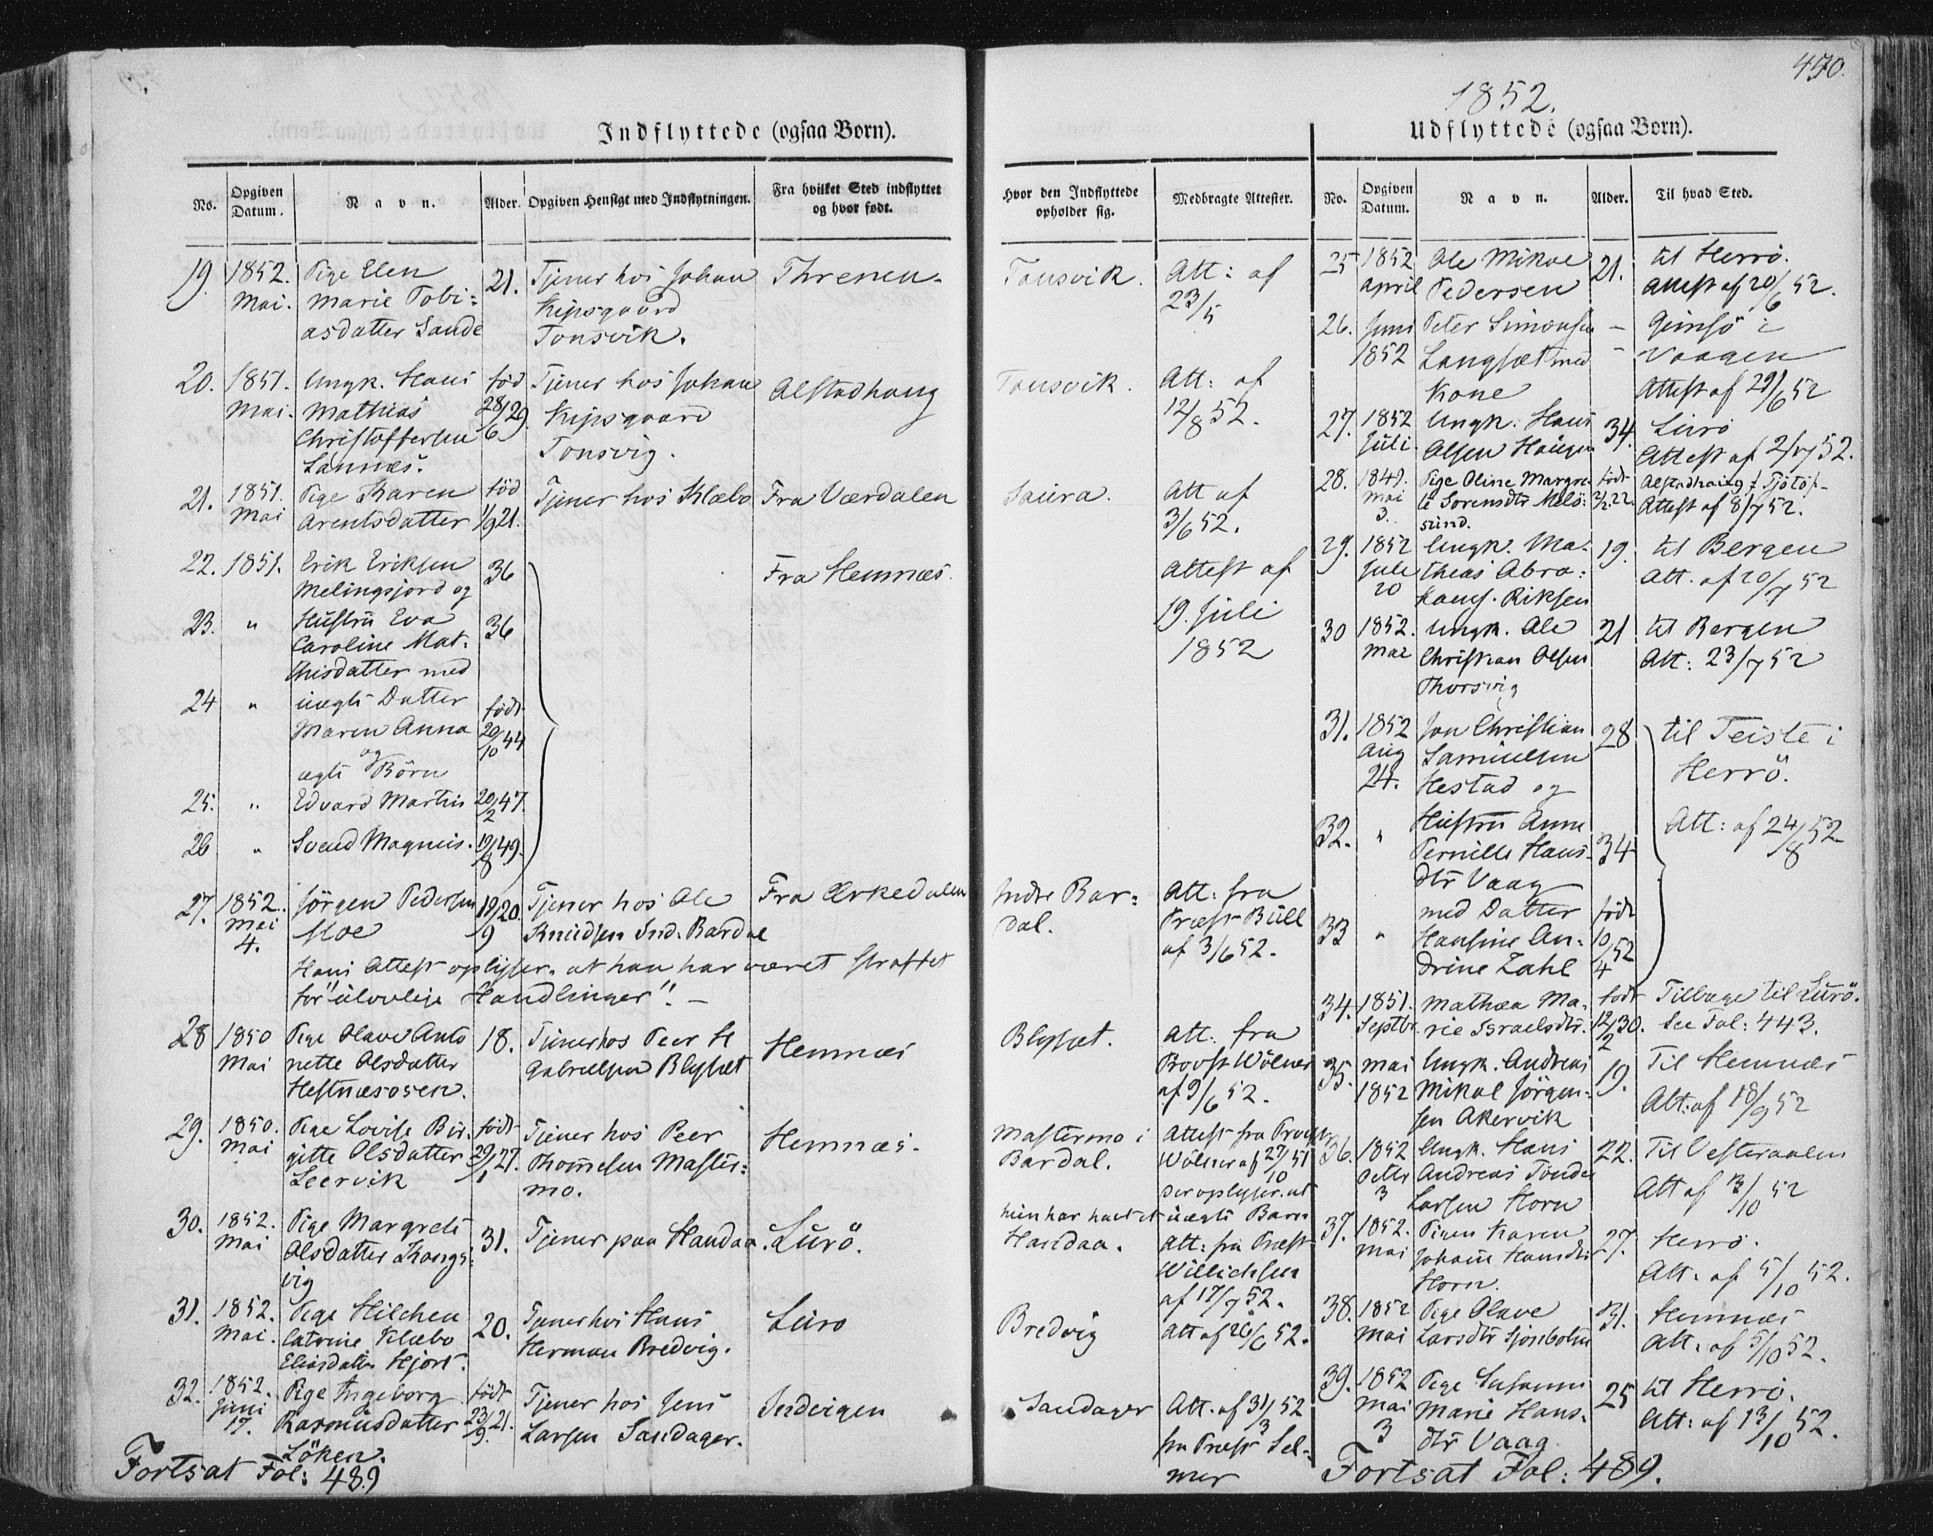 450.
1852.
Indflyttede (ogsaa Børn).
No.
Opgiven Datum.
Navn.
Alder.
Opgiven Hensigt med Indflytningen.
Fra hvilket Sted indflyttet og hvor født.
Hvor den Indflyttede opholder sig.
Medbragte Attester.
19. 1852. Pige Elen 21. Tjener hos Johan Threnen. Tonsvik. Att: af
Mai. Marie Tobi- Kipsgaard 23/5
asdatter Sande Tonsvik.
20. 1851. Ungk. Hans fød Tjener hos Johan Alstadhaug Tonsvik. Att: af
Mai. Mathias 28/6 29. Kipsgaard 12/8 52.
Christoffersen Tonsvig.
Sannæs.
21. 1851. Pige Karen fød Tjener hos Klæbo Fra Værdalen Saura. Att af
Mai Arentsdatter 1/9 21. 3/6 52.
22. 1851. Erik Eriksen 36 Fra Hemnæs. Attest af
Melingsjord og 19. Juli
23. " Hustru Eva 36 1852
Caroline Mat-
thisdatter med
24 " uægte Datter født
Maren Anna 29/10 44
og
ægte Børn
25. " Edvard Martin 20/2 47.
26 " Svend Magnus. 19/8 49.
27. 1852. Jörgen Pedersen 19/9 20. Tjener hos Ole Fra Ørkedalen Indre Bar- Att: fra
Mai Moe Knudsen Ind. Bardal dal. Præst Bull
4. af 3/6 52.
Hans Attest oplyser, at han har været straffet
for "ulovlige Handlinger". —
28 1850 Pige Olave Anto 18. Tjener hos Peer H Hemnæs Blysæt. Att: fra
Mai nette Olsdatter Gabrielsen Blysæt Provst Wölner
Hestnæsosen. af 9/6 52.
29. 1850. Pige Lovise Bir- født Tjener hos Peer Hemnæs. Mastermo i Attest fra Provst
Mai gitte Olsdatter 29/1 27. Thomesen Master- Bardal. Wölner af 27/10 51
Leervik mo. der oplyser, at
hun har havt et uægte Barn
30. 1852. Pige Margrete 31. Tjener paa Handaa. Lurö. Handaa. Att: fra Præst
Mai Olsdatter Kongs- Willichsen
vig af 17/7 52.
31. 1852. Pige Hilchen 20. Tjener hos Hans Luro Bredvig Att af 26/6 52.
Mai. Catrine Klæbo Herman Bredvig.
Eliasdatter Hjort.
32. 1852. Pige Ingeborg født Tjener hos Jens Indvigen Sandager Att. af 31/3 52
Juni Rasmusdatter 23/9 21. Larsen Sandager. fra Præst Sel-
17. Löken. mer
Fortsat Fol: 489
Udflyttede (ogsaa Børn).
No.
Opgiven Datum.
Navn.
Alder.
Til hvad Sted.
25 1852 Ole Mikael 21. til Herrö.
April Pedersen Attest af 20/6 52.
26. Juni Peter Simonsen — Gimsö i
1852 Langsæt med — Vaagen
Kone Attest af 29/6 52
27. 1852 Ungk. Hans 34. Lurö
Juli. Olsen Haugen Attest af 2/7 52.
28. 1849. Pige Oline Margre- født Alstadhaug Tjötö-
Mai te Sorensdtr Melö- 2/2 22. Attest af 8/7 52.
3. sund.
29. 1852 Ungk. Ma- 19. til Bergen
Juli theas Abra- Att. af 20/7 52
20 hams. Riksen
30 1852. Ungk. Ole 21 til Bergen
Mai Christian Olsen Att: 23/7 52
Thorsvig
31. 1852 Jon Christian 28 til Teiste i
Aug Samuelsen Herrö.
24. Hestad og
32. " Hustru Anne 34 Att: af 24/8 52
Pernille Hans-
dtr Vaag
med Datter født
33 " Hansine An- 10/4 52
drine Zahl
34. 1851. Mathea Ma- født Tilbage til Lurö.
Septbr. rie Israelsdtr. 12/2 30. See Fol: 443.
35. Mai Ungk. Andreas 19. Til Hemnæs
1852 Mikal Jörgen- Att: af 18/9 52
sen Akervik
36. 1852 Ungk. Hans 22. Til Vesteraalen
Octbr Andreas Tönder Att af 13/10 52
3 Larsen Horn
37. 1852. Pigen Karen 27. Herrö.
Mai Johane Hansdtr Att. af 5/10 52.
Horn
38. 1852 Pige Olave 31. Hemnæs
Mai Larsdtr Sjonbotn Att. af 5/10 52.
39. 1852 Pige Susanne 25 til Herrö.
Mai Marie Hans- Att: af 13/10 52.
3 dtr Vaag
Fortsat Fol: 489.